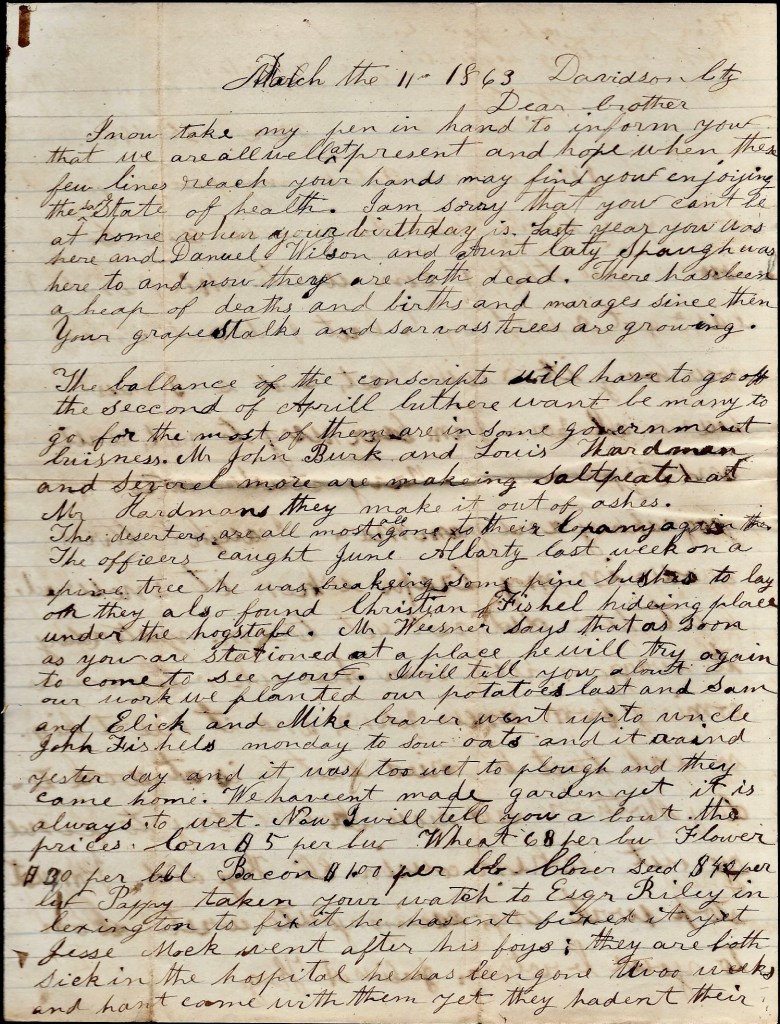 March the 11 1863 Davidson Cty
Dear brother
I now take my pen in hand to inform you
that we are all well at present and hope when these
few lines reach your hands may find you enjoijing
the same State of health. I am sorry that you cant be
at home when your birthday is. Last year you was
here and Danuel Wilson and Aunt Caty Spaugh was
here to and now they are both dead. There has been
a heap of deaths and births and marages since then
Your grapestalks and sarvass trees are growing.
The ballance of the conscripts will have to go off
the seccond of Aprill but here want be many to
go for the most of them are in some government
buisness. Mr John Burk and Louis Hardman
and several more are makeing saltpeater at
Mr Hardmans they make it out of ashes.
The deserters are all most all gone to their Cpany again the
The officers caught June Albarty last week on a
pine tree he was breaking some pine bushes to lay
on they also found Christian Fishel hideing place
under the hogstable. Mr Weesner says that as soon
as you are stationed at a place he will try again
to come to see you. I will tell you about
our work we planted our potatoes last and Sam
and Elick and Mike braver went up to uncle
John Fishels monday to sow oats and it raind
yester day and it was too wet to plough and they
came home. We havent made garden yet it is
always to wet. Now I will tell you a bout the
prices. Corn $5 per bu Wheat 6$ per bu Flower
$30 per bbl Bacon $1.00 per lb. Clover seed per
bu Pappy taken your watch to Esqr Riley in
lexington to fix it he hasent fixed it yet
Jesse Mock went after his boys; they are both
sick in the hospital he has been gone twoo weeks
and hant come with them yet they hadent their